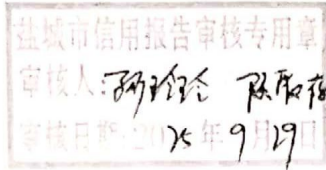 盐城市信用报告审核专用章
审核人:
审核日期:2025年9月29日